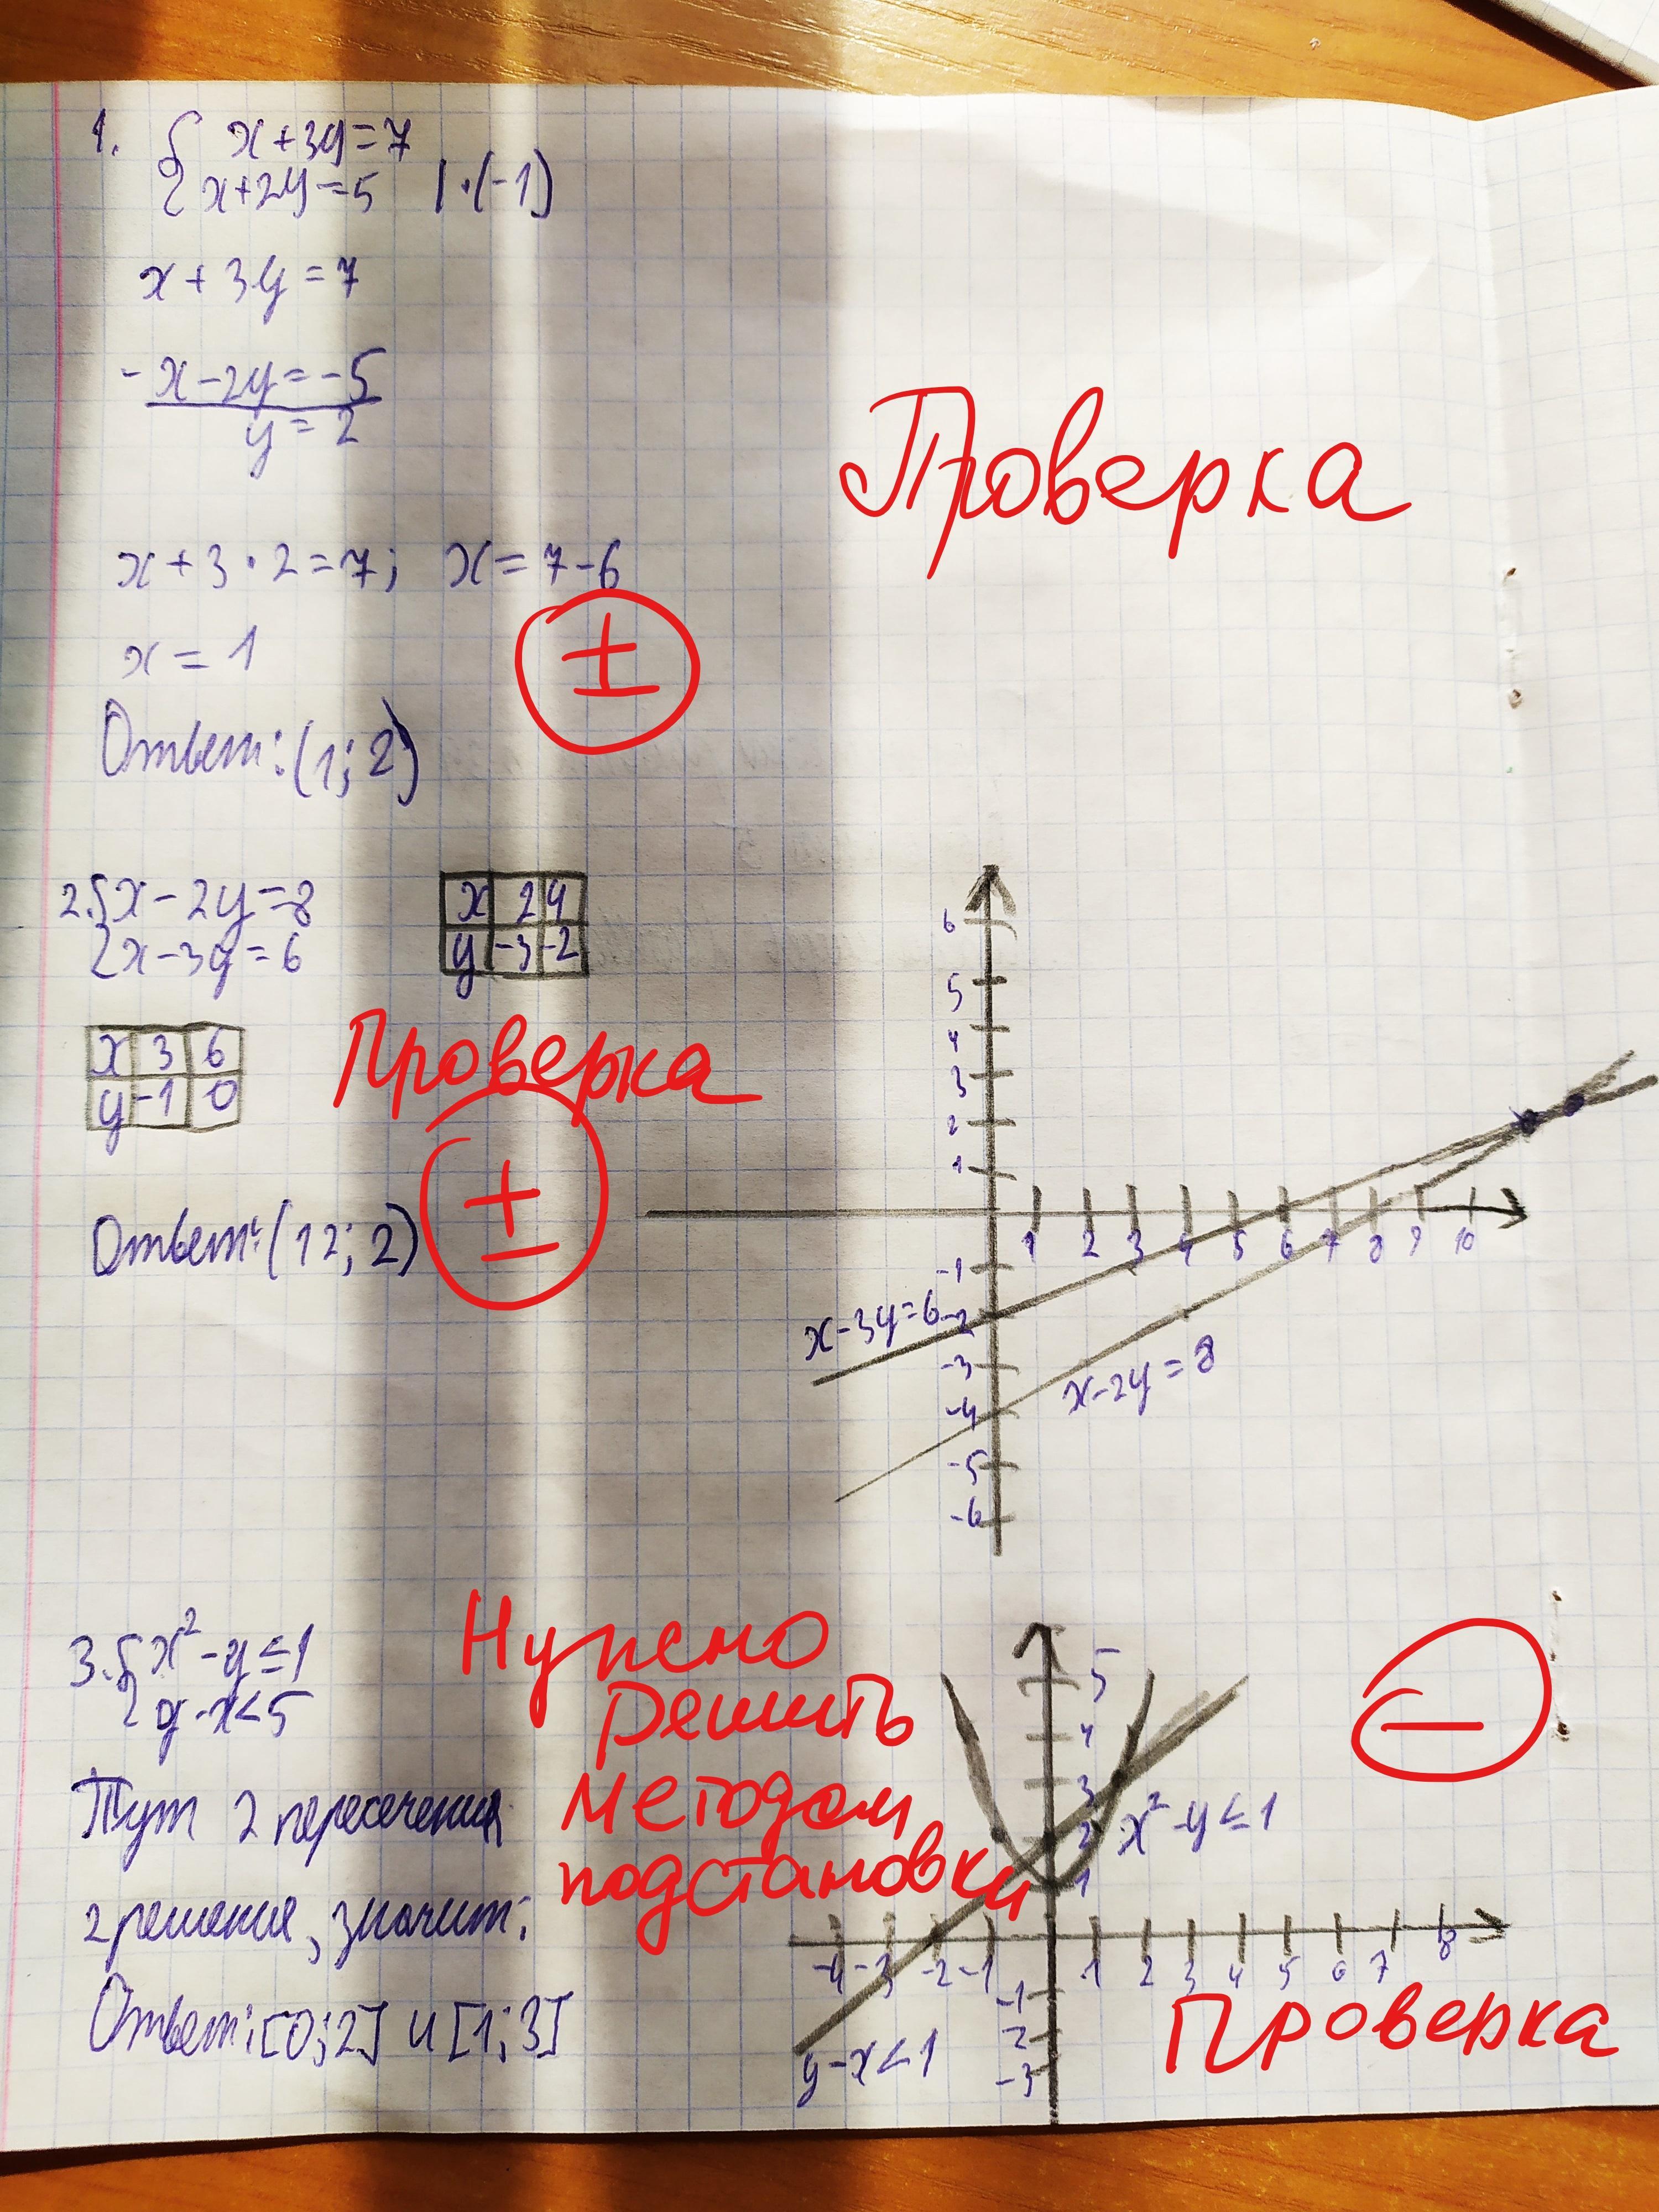 1. { x+3y=7
{ x+2y=5 | ·(-1)
x+3y=7
-x-2y=-5
y=2
Проверка
x+3·2=7; x=7-6
±
x=1
Ответ: (1; 2)
2. { x-2y=8
{ x-3y=6
x 2 4
y -3 -2
x 3 6
y -1 0
Проверка
±
Ответ: (12; 2)
6
5
4
3
2
1
1 2 3 4 5 6 7 8 9 10
-1
x-3y=6
-2
-3
x-2y=8
-4
-5
-6
3. { x²-y≤1
{ y-x<5
Нужно
решить
методом
подстановки
–
Тут 2 пересечения
2 решения, значит:
Ответ: [0;2] и [1;3]
5
4
3
2
1
x²-y≤1
-4 -3 -2 -1 1 2 3 4 5 6 7 8
-1
-2
-3
y-x<1
Проверка